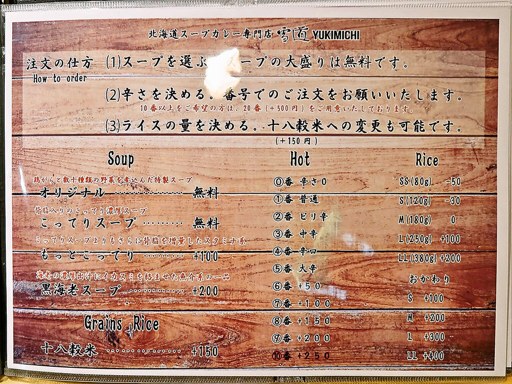 北海道スープカレー専門店 雪道 YUKIMICHI
注文の仕方 (1)スープを選ぶ スープの大盛りは無料です.
How to order
(2)辛さを決める. 番号でのご注文をお願いいたします.
10番以上をご希望の方は, 20番(+500円)をご用意いたしております.
(3)ライスの量を決める. 十八穀米への変更も可能です.
(+150円)
Soup
鶏がらと数十種類の野菜を煮込んだ特製スープ
オリジナル 無料
背脂入りのこってり濃厚スープ
こってりスープ 無料
こってりスープよりもさらに背脂を増量したスタミナ系
もっとこってり +100
黒海老スープ +200
Grains Rice
十八穀米 +150
Hot
⓪番 辛さ0
①番 普通
②番 ピリ辛
③番 中辛
④番 辛口
⑤番 大辛
⑥番 +50
⑦番 +100
⑧番 +150
⑨番 +200
⑩番 +250
Rice
SS(80g) -50
S(120g) -30
M(180g) 0
L(250g) +100
LL(380g) +200
おかわり
S +100
M +200
L +300
LL +400